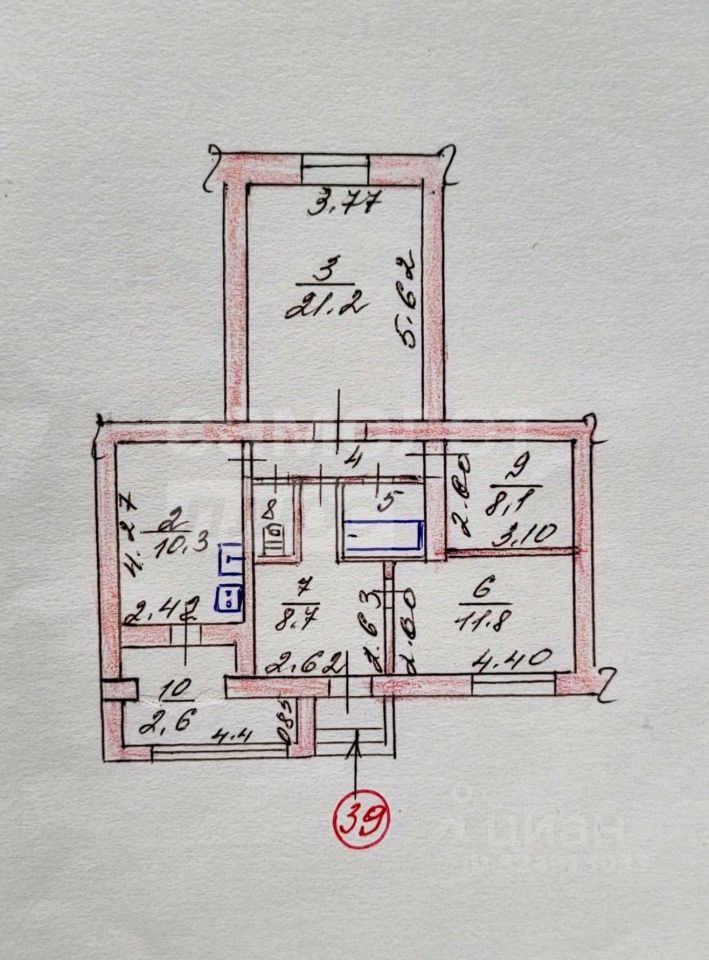 3.77
3
21.2
5.62
4
2
10.3
4.27
2.42
8
5
9
8.1
2.60
3.10
7
8.7
2.62
2.63
6
11.8
2.60
4.40
10
2,6
4.4
циан
39